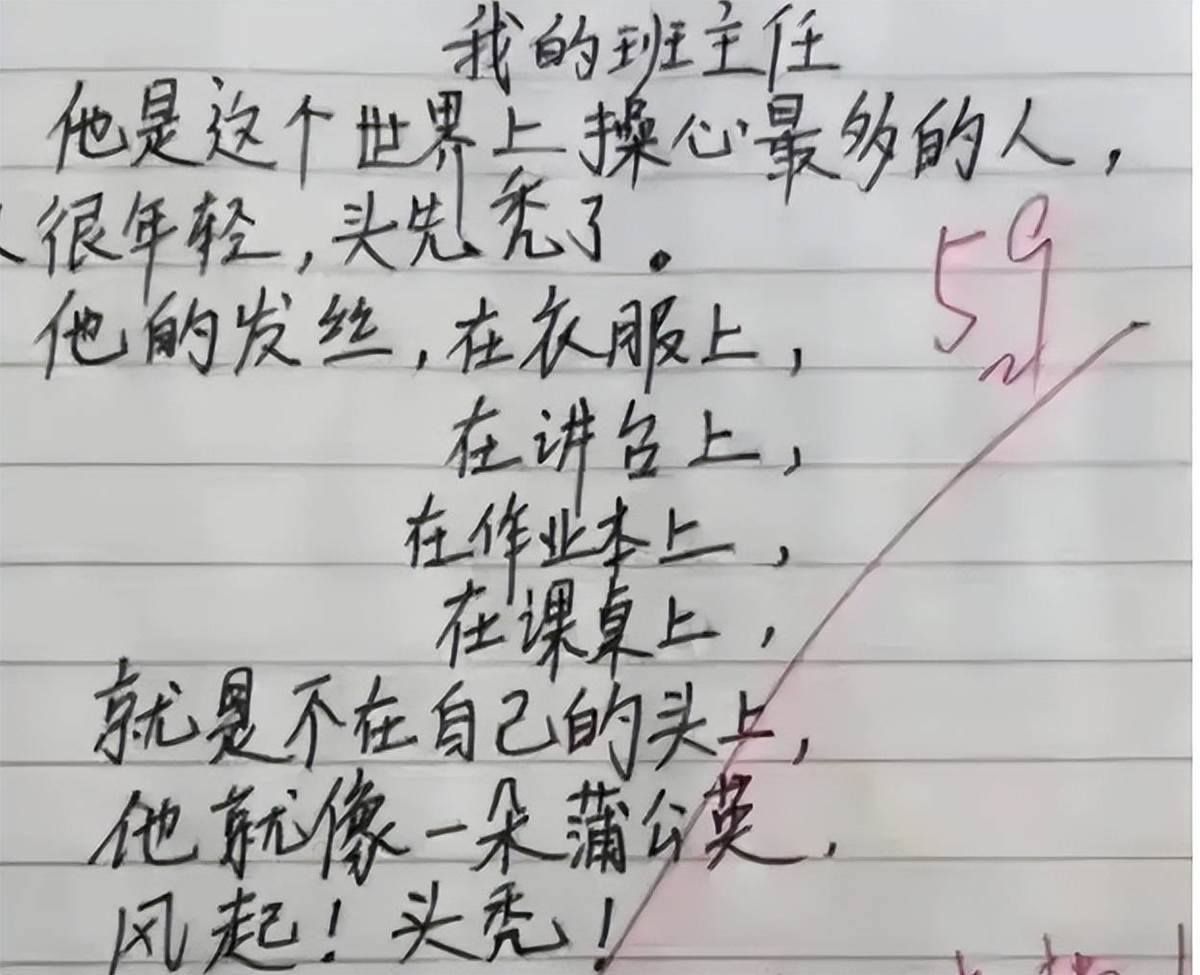 我的班主任
他是这个世界上操心最多的人，
人很年轻，头先秃了。
他的发丝，在衣服上，
在讲台上，
在作业本上，
在课桌上，
就是不在自己的头上，
他就像一朵蒲公英，
风起！头秃！
59